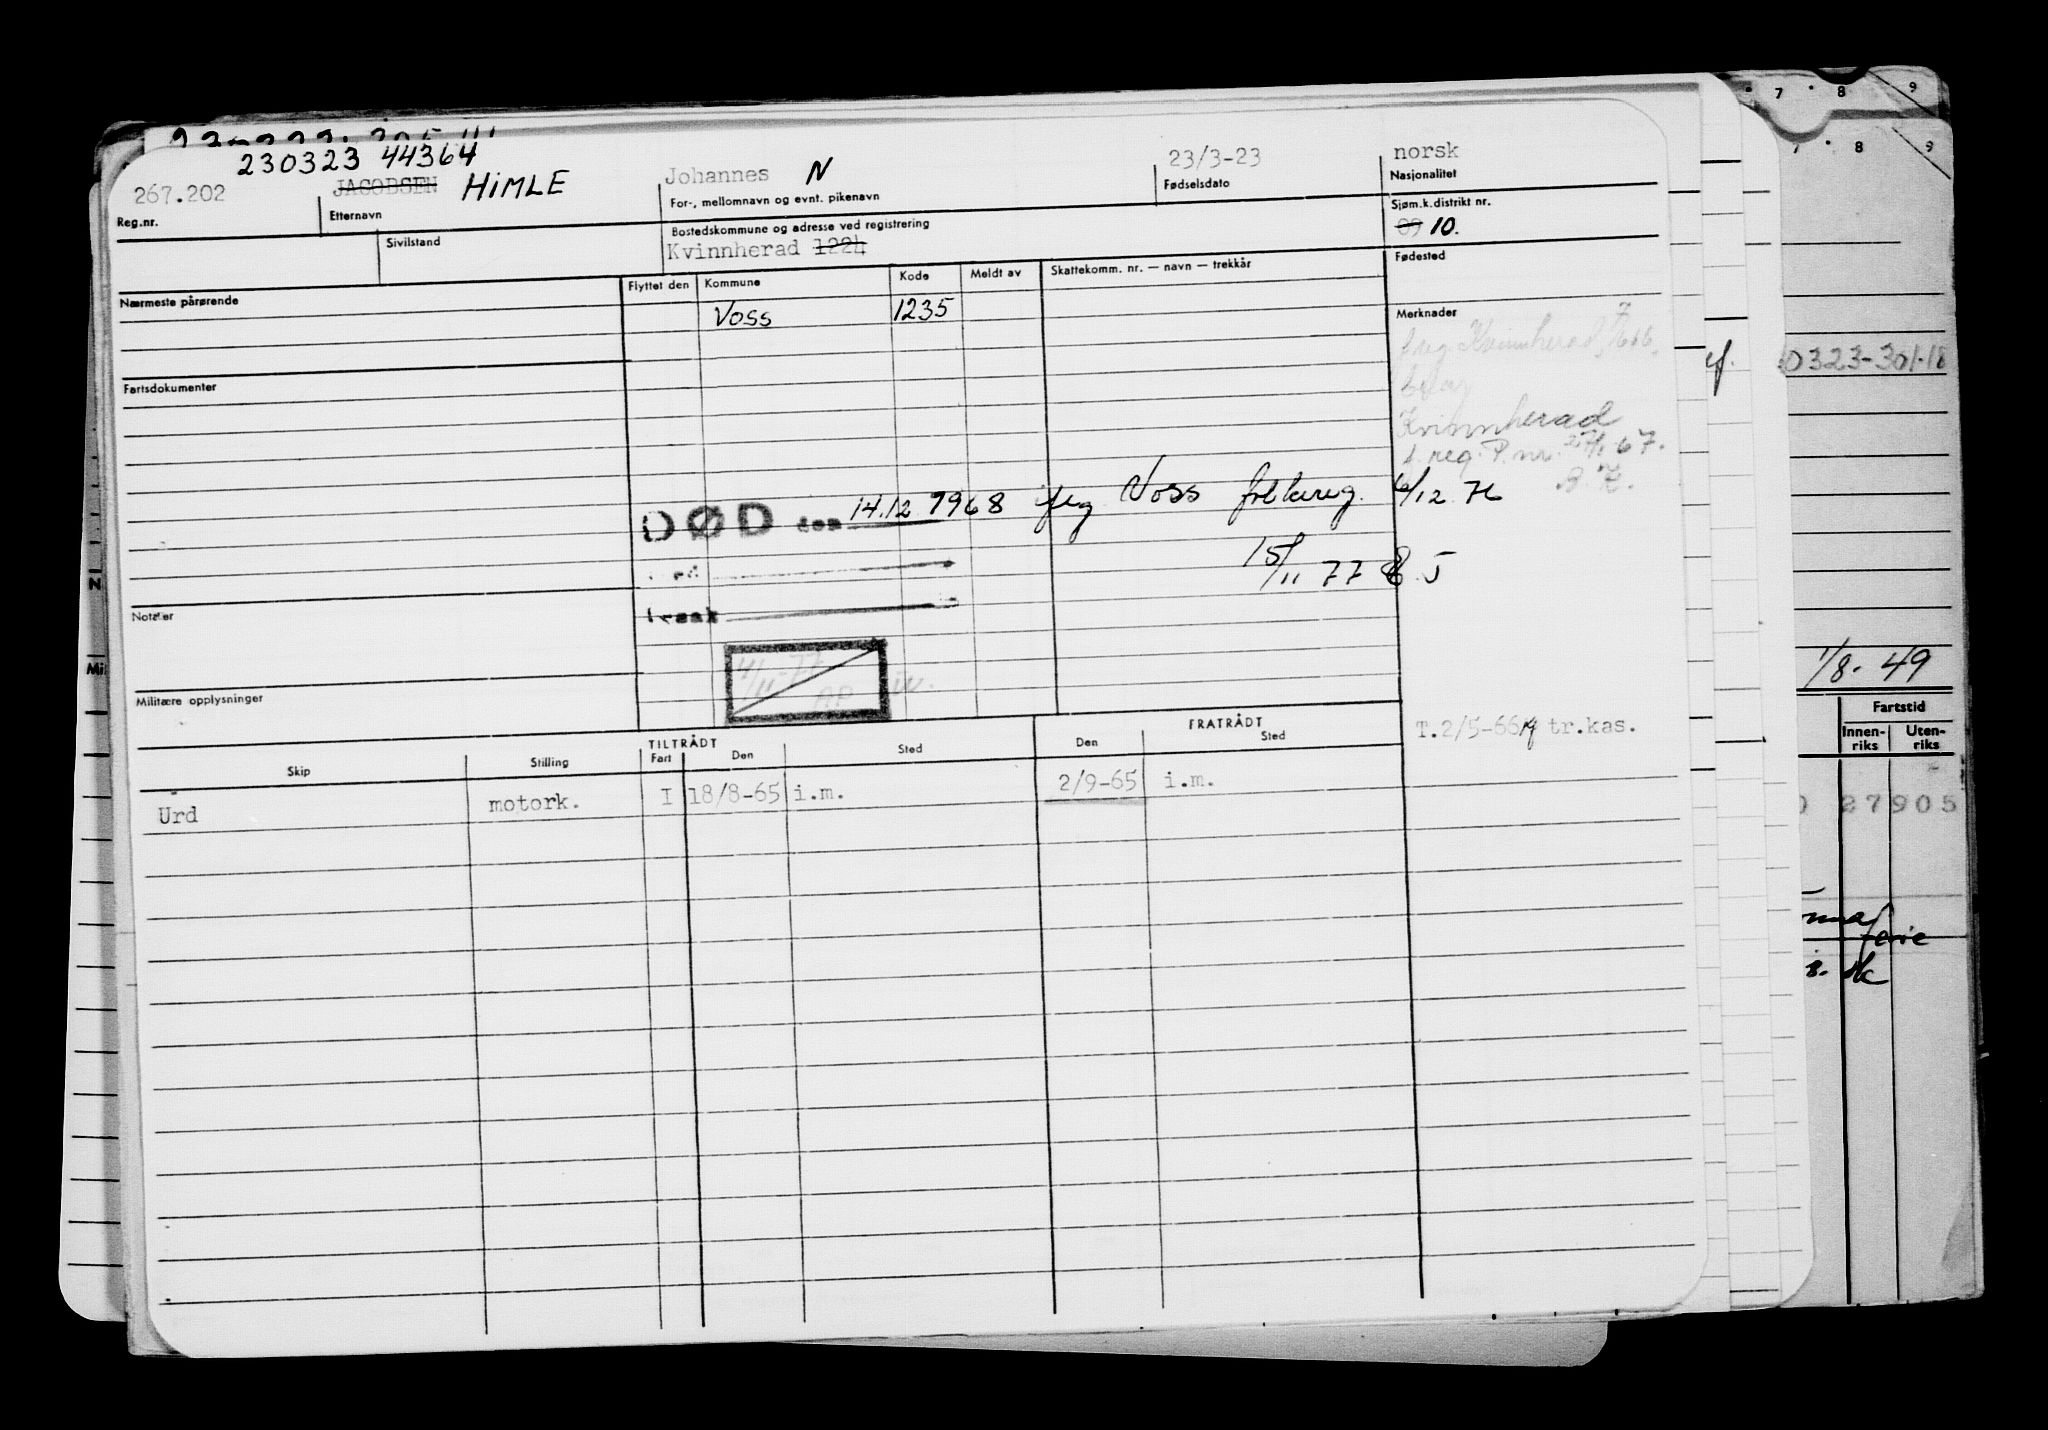 7 8 9
8 9
230323 44364
267.202 JACOBSEN HIMLE Johannes N 23/3-23 norsk
Reg.nr. Etternavn For-, mellomnavn og evnt. pikenavn Fødselsdato Nasjonalitet
Sivilstand Bostedskommune og adresse ved registrering Sjøm.k.distrikt nr.
Kvinnherad 1224 09 10.
Nærmeste pårørende Flyttet den Kommune Kode Meldt av Skattekomm. nr. — navn — trekkår Fødested
Voss 1235 Merknader
Kvinnherad
0323-301-18
Fartsdokumenter
Kvinnherad
reg. P.nr. 27/1-67.
DØD den 14.12 1968 Voss folkereg. 6/12 76
15/11 77
Notater
Militære opplysninger
1/8-49
Fartstid
Innen-riks Uten-riks
TILTRÅDT FRATRÅDT T.2/5-66 tr.kas.
Skip Stilling Fart Den Sted Den Sted
Urd motork. I 18/8-65 i.m. 2/9-65 i.m.
27905
ferie